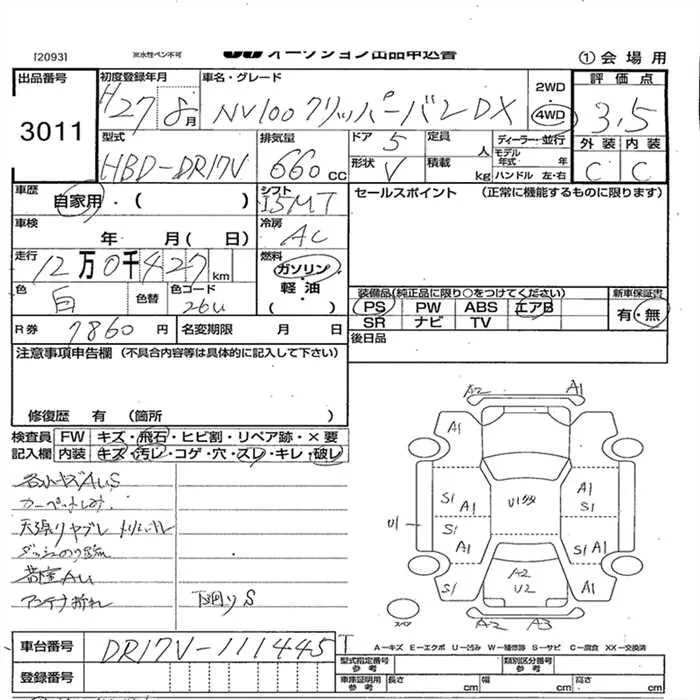 [2093] 油水性ペン不可 オークション出品申込書 ①会場用
出品番号 初度登録年月 車名・グレード 2WD 評価点
3011 H27 8月 NV100クリッパーバンDX 4WD 3.5
型式 排気量 ドア 定員 ディーラー・並行 外装 内装
HBD-DR17V 660cc 5 人 モデル年式 年 C C
形状 V 積載 kg ハンドル 左・右
車歴 自家用・( ) シフト I5MT セールスポイント (正常に機能するものに限ります)
車検 年 月( 日) 冷房 AC
走行 12万0千427km 燃料 ガソリン・軽油・( )
色 白 色替 色コード 26U
装備品(純正品に限り○をつけてください) 新車保証書
PS PW ABS エアB 有・無
SR ナビ TV
R券 7860円 名変期限 月 日 後日品
注意事項申告欄 (不具合内容等は具体的に記入して下さい)
修復歴 有 (箇所 )
検査員 FW キズ・飛石・ヒビ割・リペア跡・×要
記入欄 内装 キズ・汚レ・コゲ・穴・スレ・キレ・破レ
カーペットしみ
天張りヤブレ
ダッシュのり跡
荷室AU
アンテナ折れ 下廻りS
A2 A1
A1 A1
S1 A1
U1 S1 S1
A1 A1
S1 A2 U2 A1
スペア A2 A3
A-キズ E-エクボ U-凹み W-補修跡 S-サビ C-腐食 XX-交換済
車台番号 DR17V-111445
登録番号
型式指定番号 参考 類別区分番号 参考
車庫証明用 参考 長さ cm 幅 cm 高さ cm